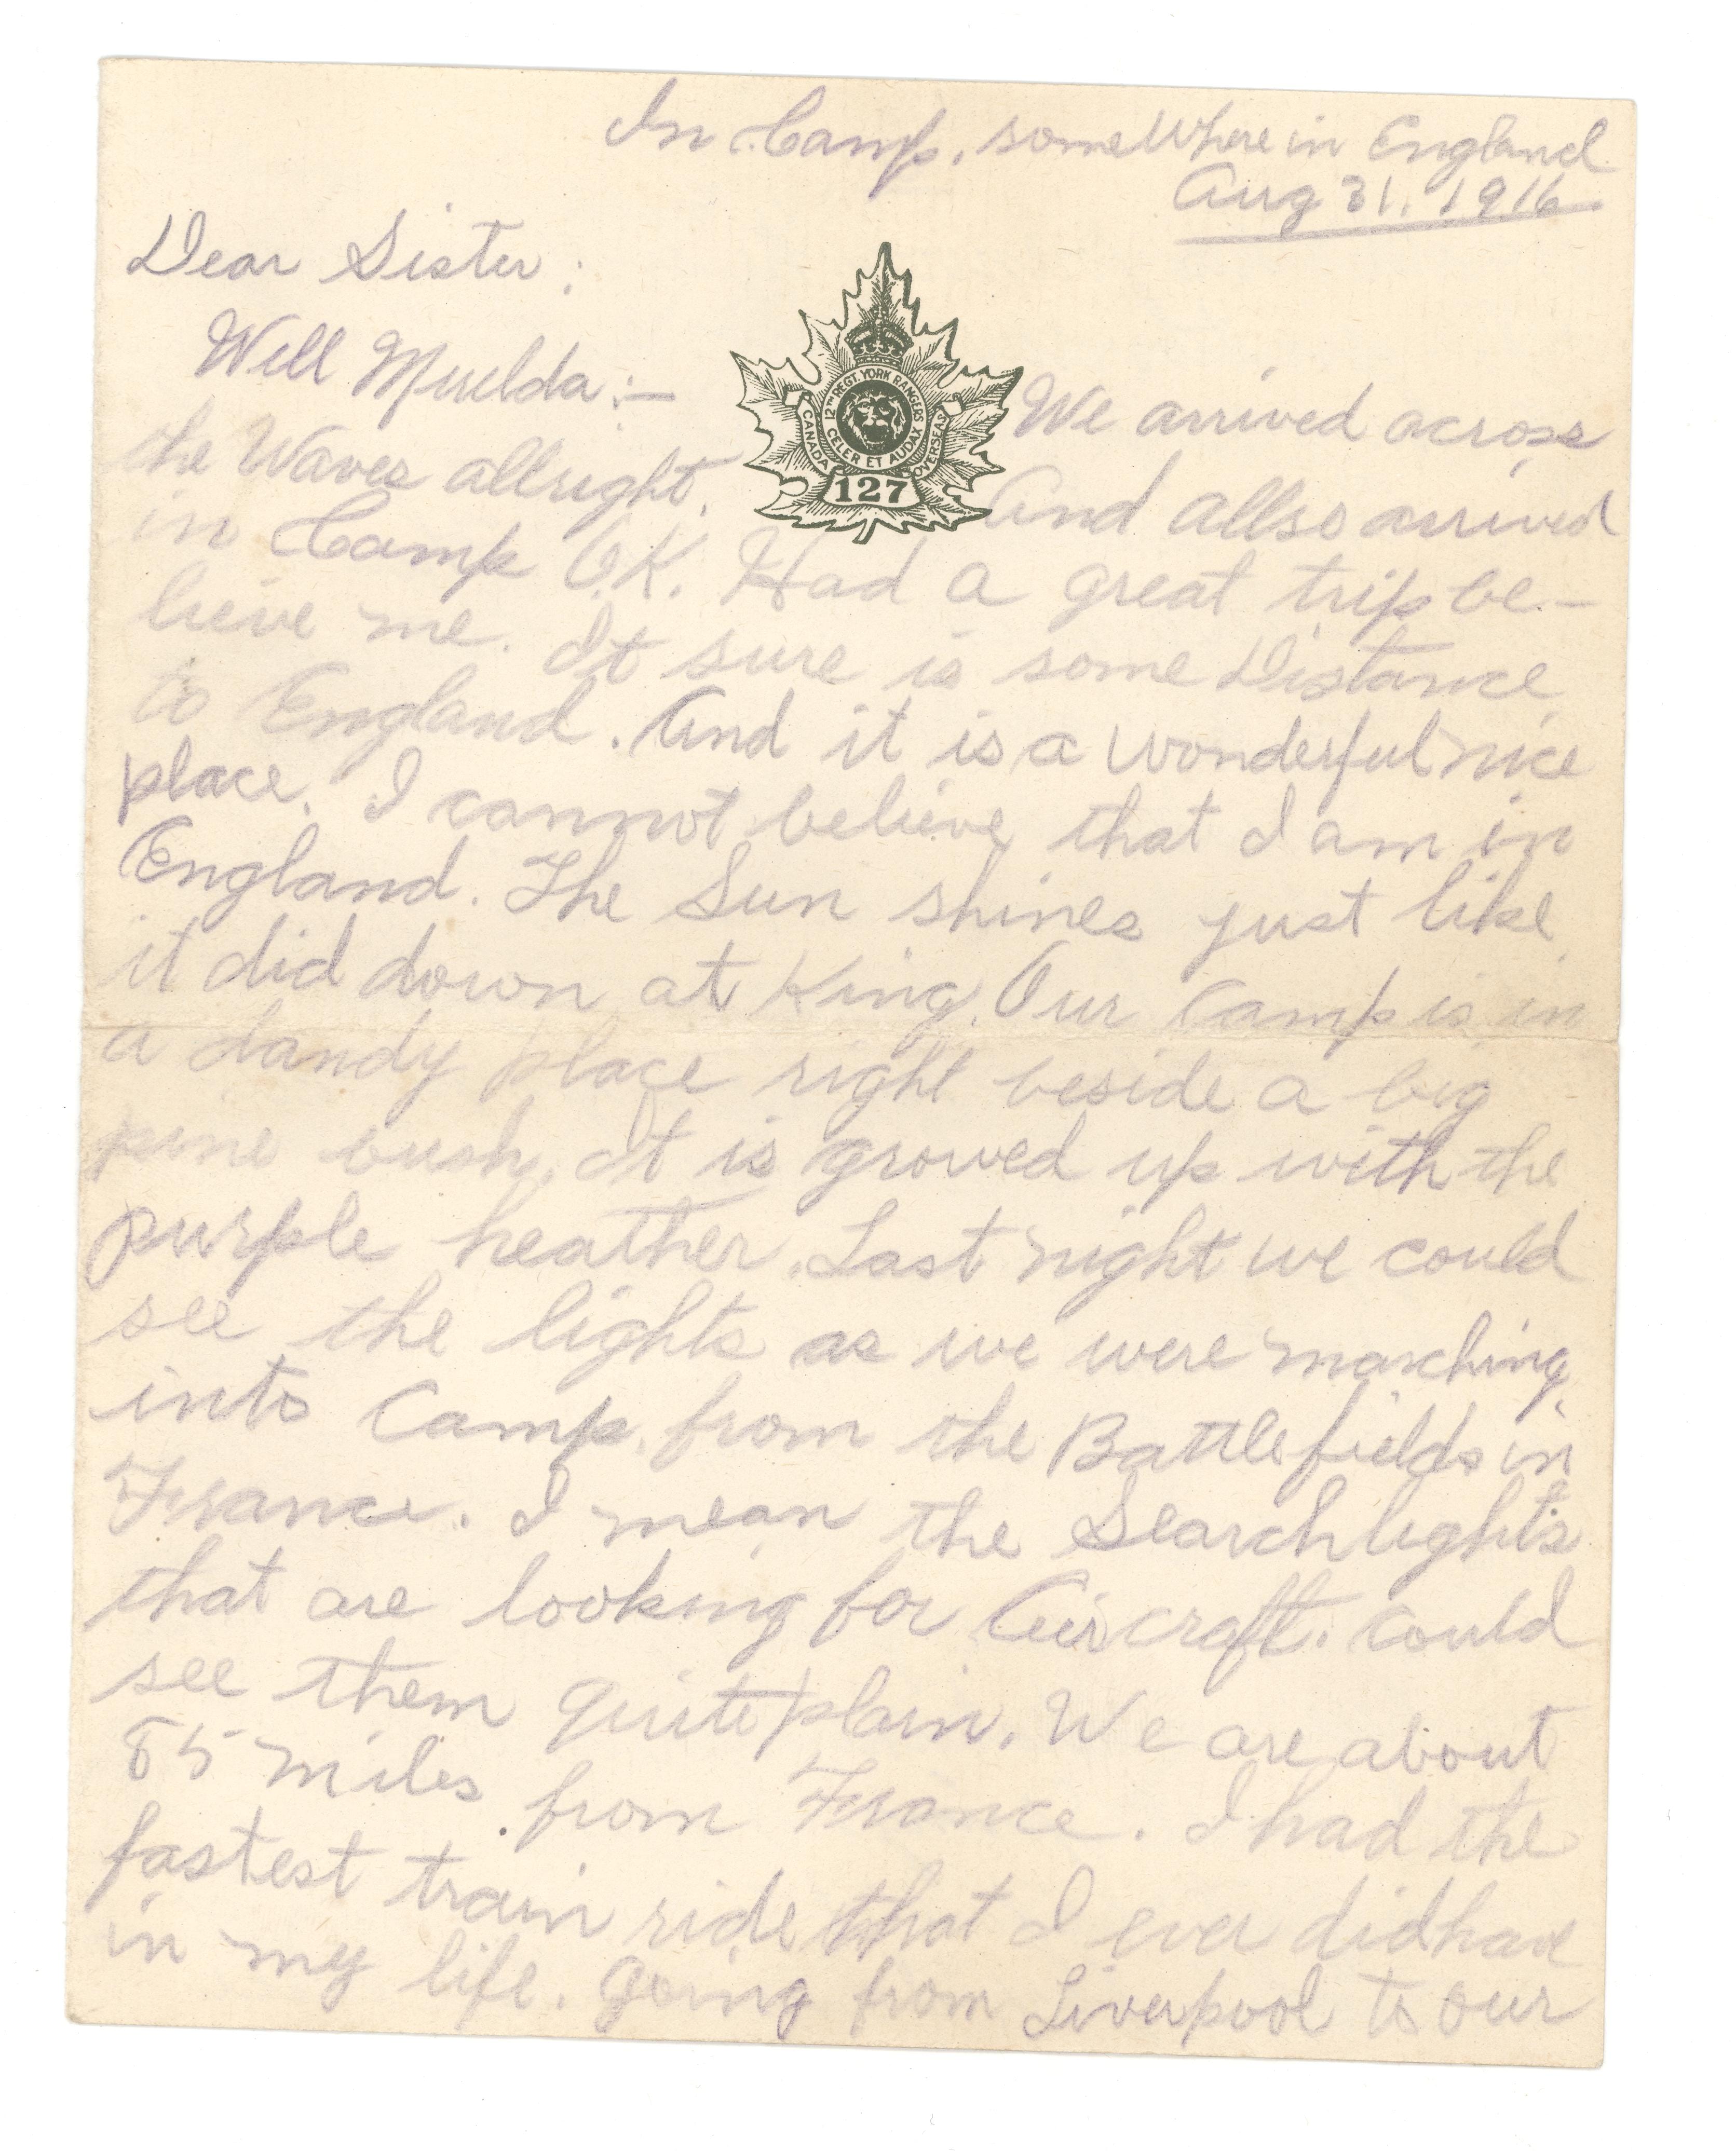 In Camp, somewhere in England
Aug 31. 1916.
Dear Sister:
Well Muelda:—
12TH REGT. YORK RANGERS
CELER ET AUDAX
CANADA OVERSEAS
127
We arrived across
the Waves allright. And allso arrived
in Camp O.K. Had a great trip be-
lieve me. It sure is some Distance
to England. And it is a wonderful nice
place. I cannot believe that I am in
England. The Sun shines just like
it did down at King. Our Camp is in
a dandy place right beside a big
pine bush. It is growed up with the
purple heather. Last night we could
see the lights as we were marching
into Camp, from the Battlefields in
France. I mean the Searchlights
that are looking for Aircraft. could
see them quite plain. We are about
85 miles from France. I had the
fastest train ride that I ever did have
in my life. going from Liverpool to our